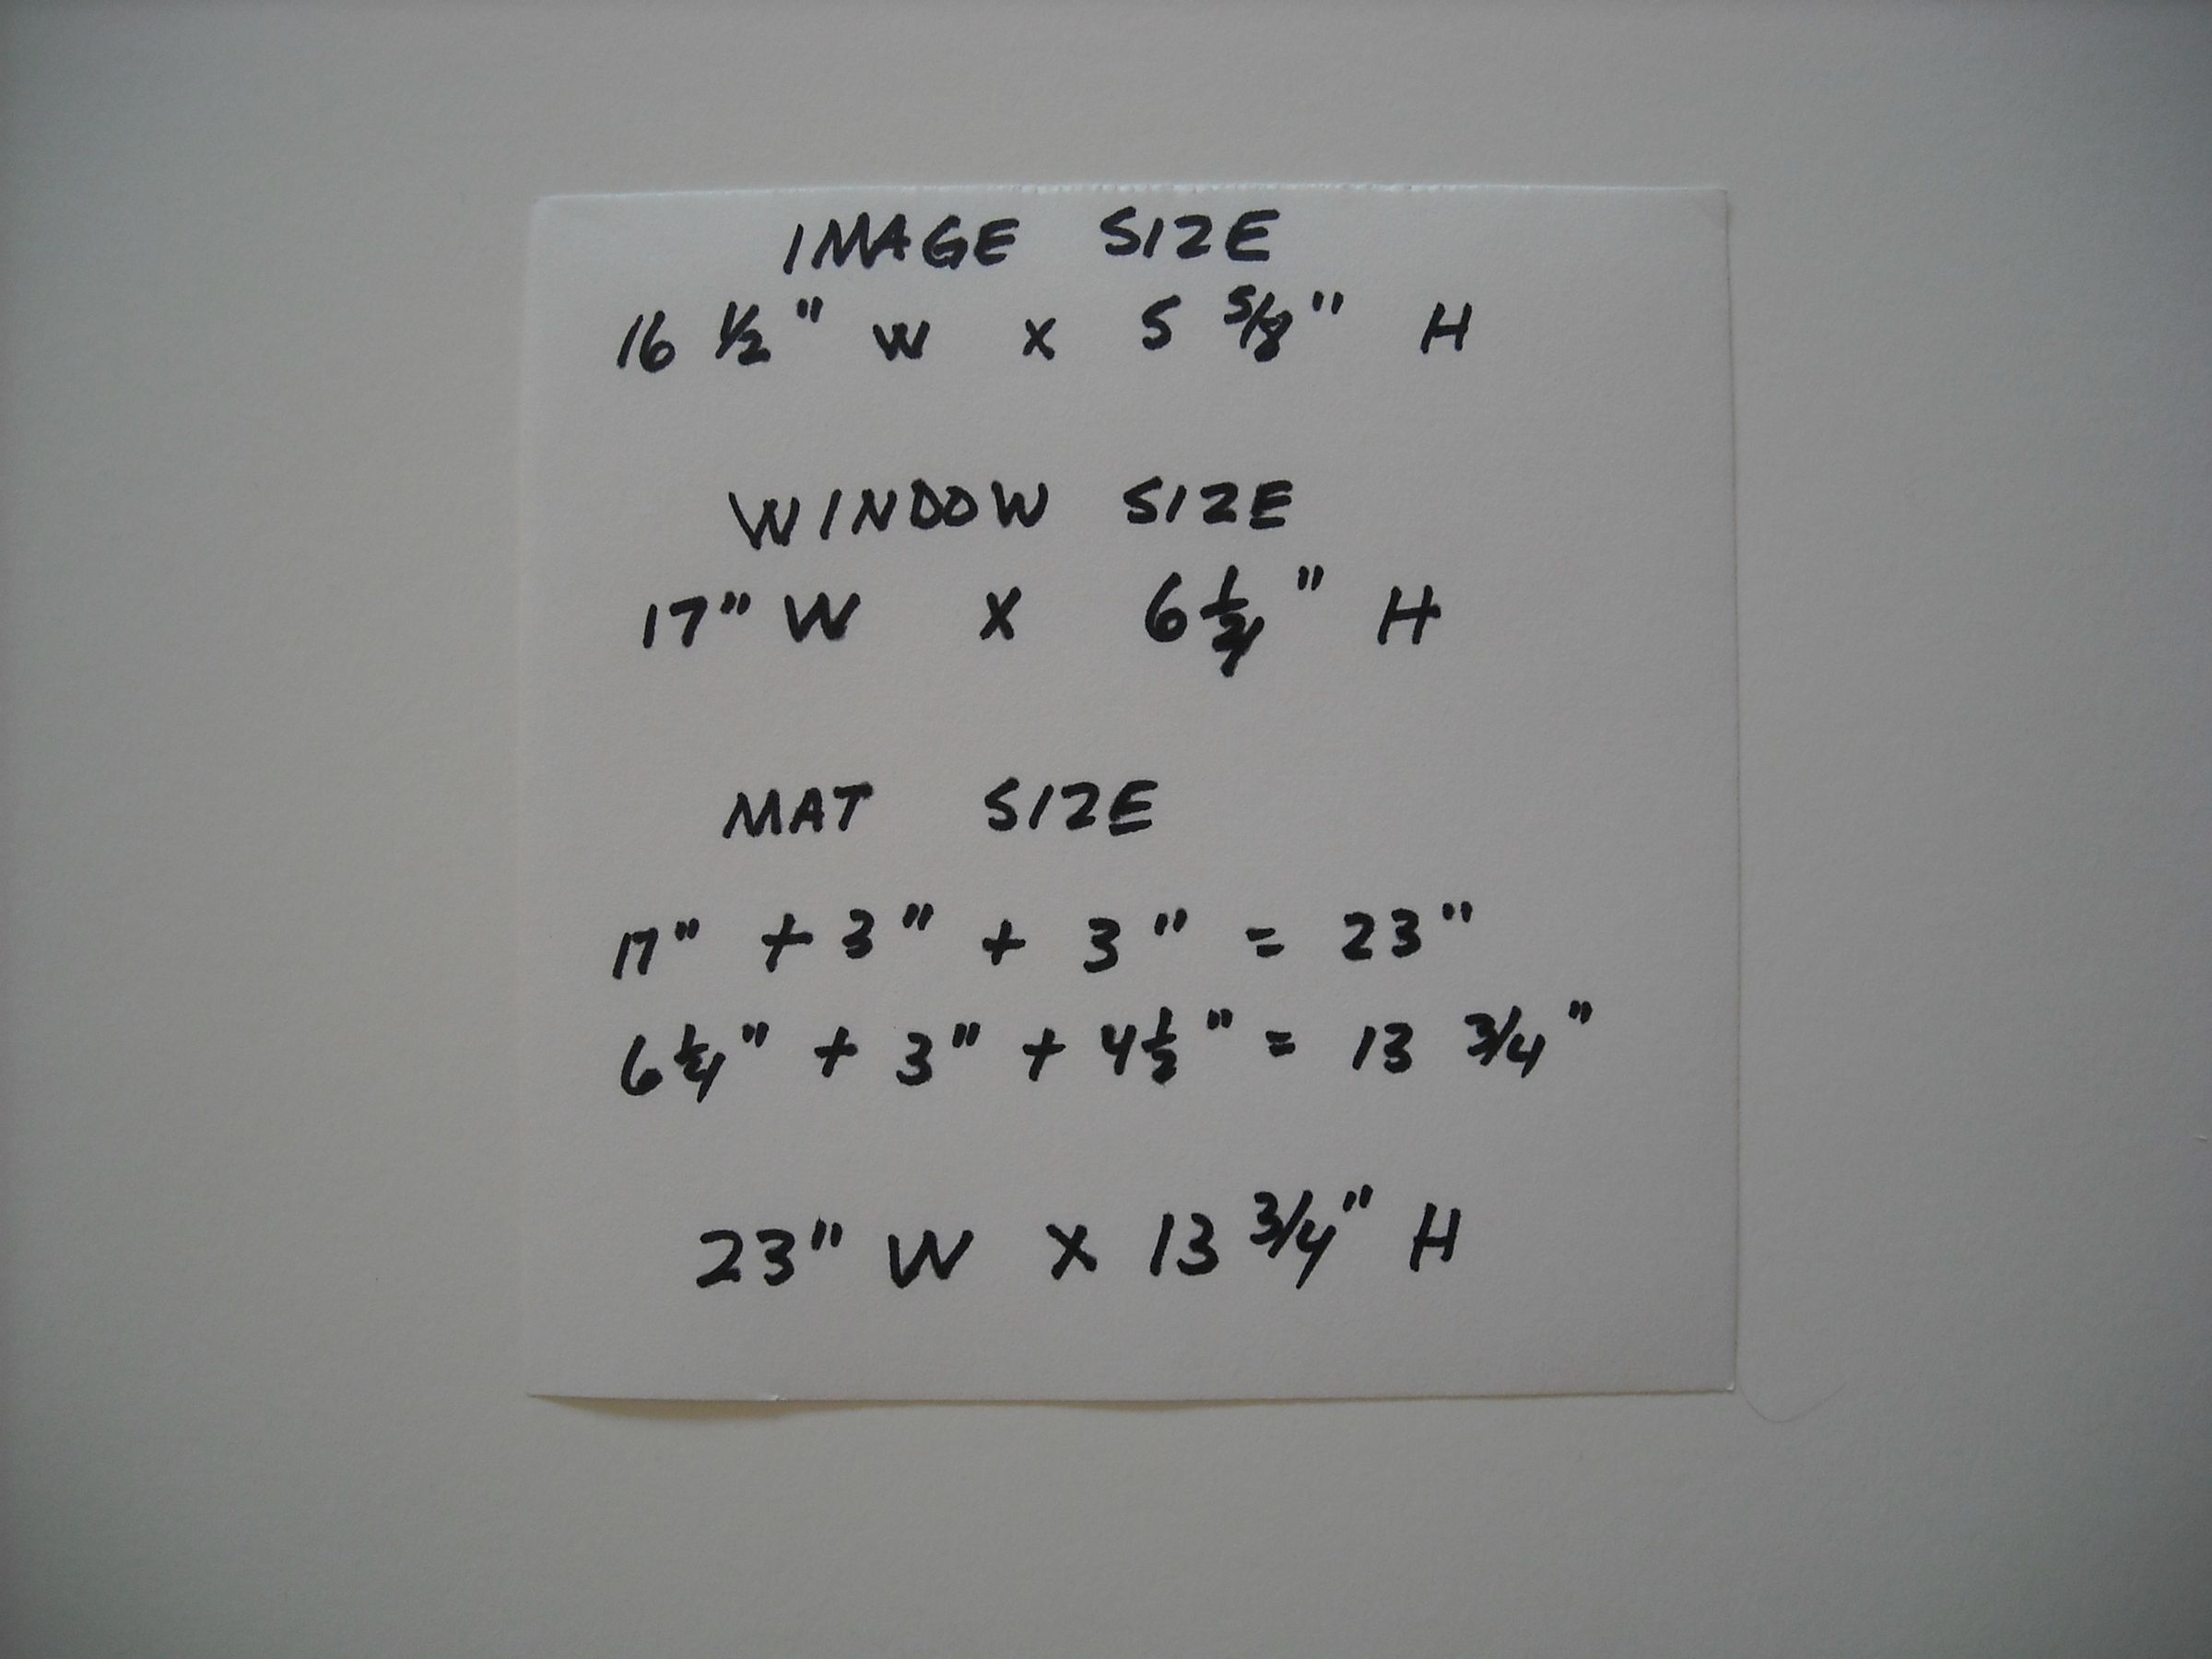 IMAGE SIZE
16 1/2" W X 5 5/8" H
WINDOW SIZE
17" W X 6 1/4" H
MAT SIZE
17" + 3" + 3" = 23"
6 1/4" + 3" + 4 1/2" = 13 3/4"
23" W X 13 3/4" H